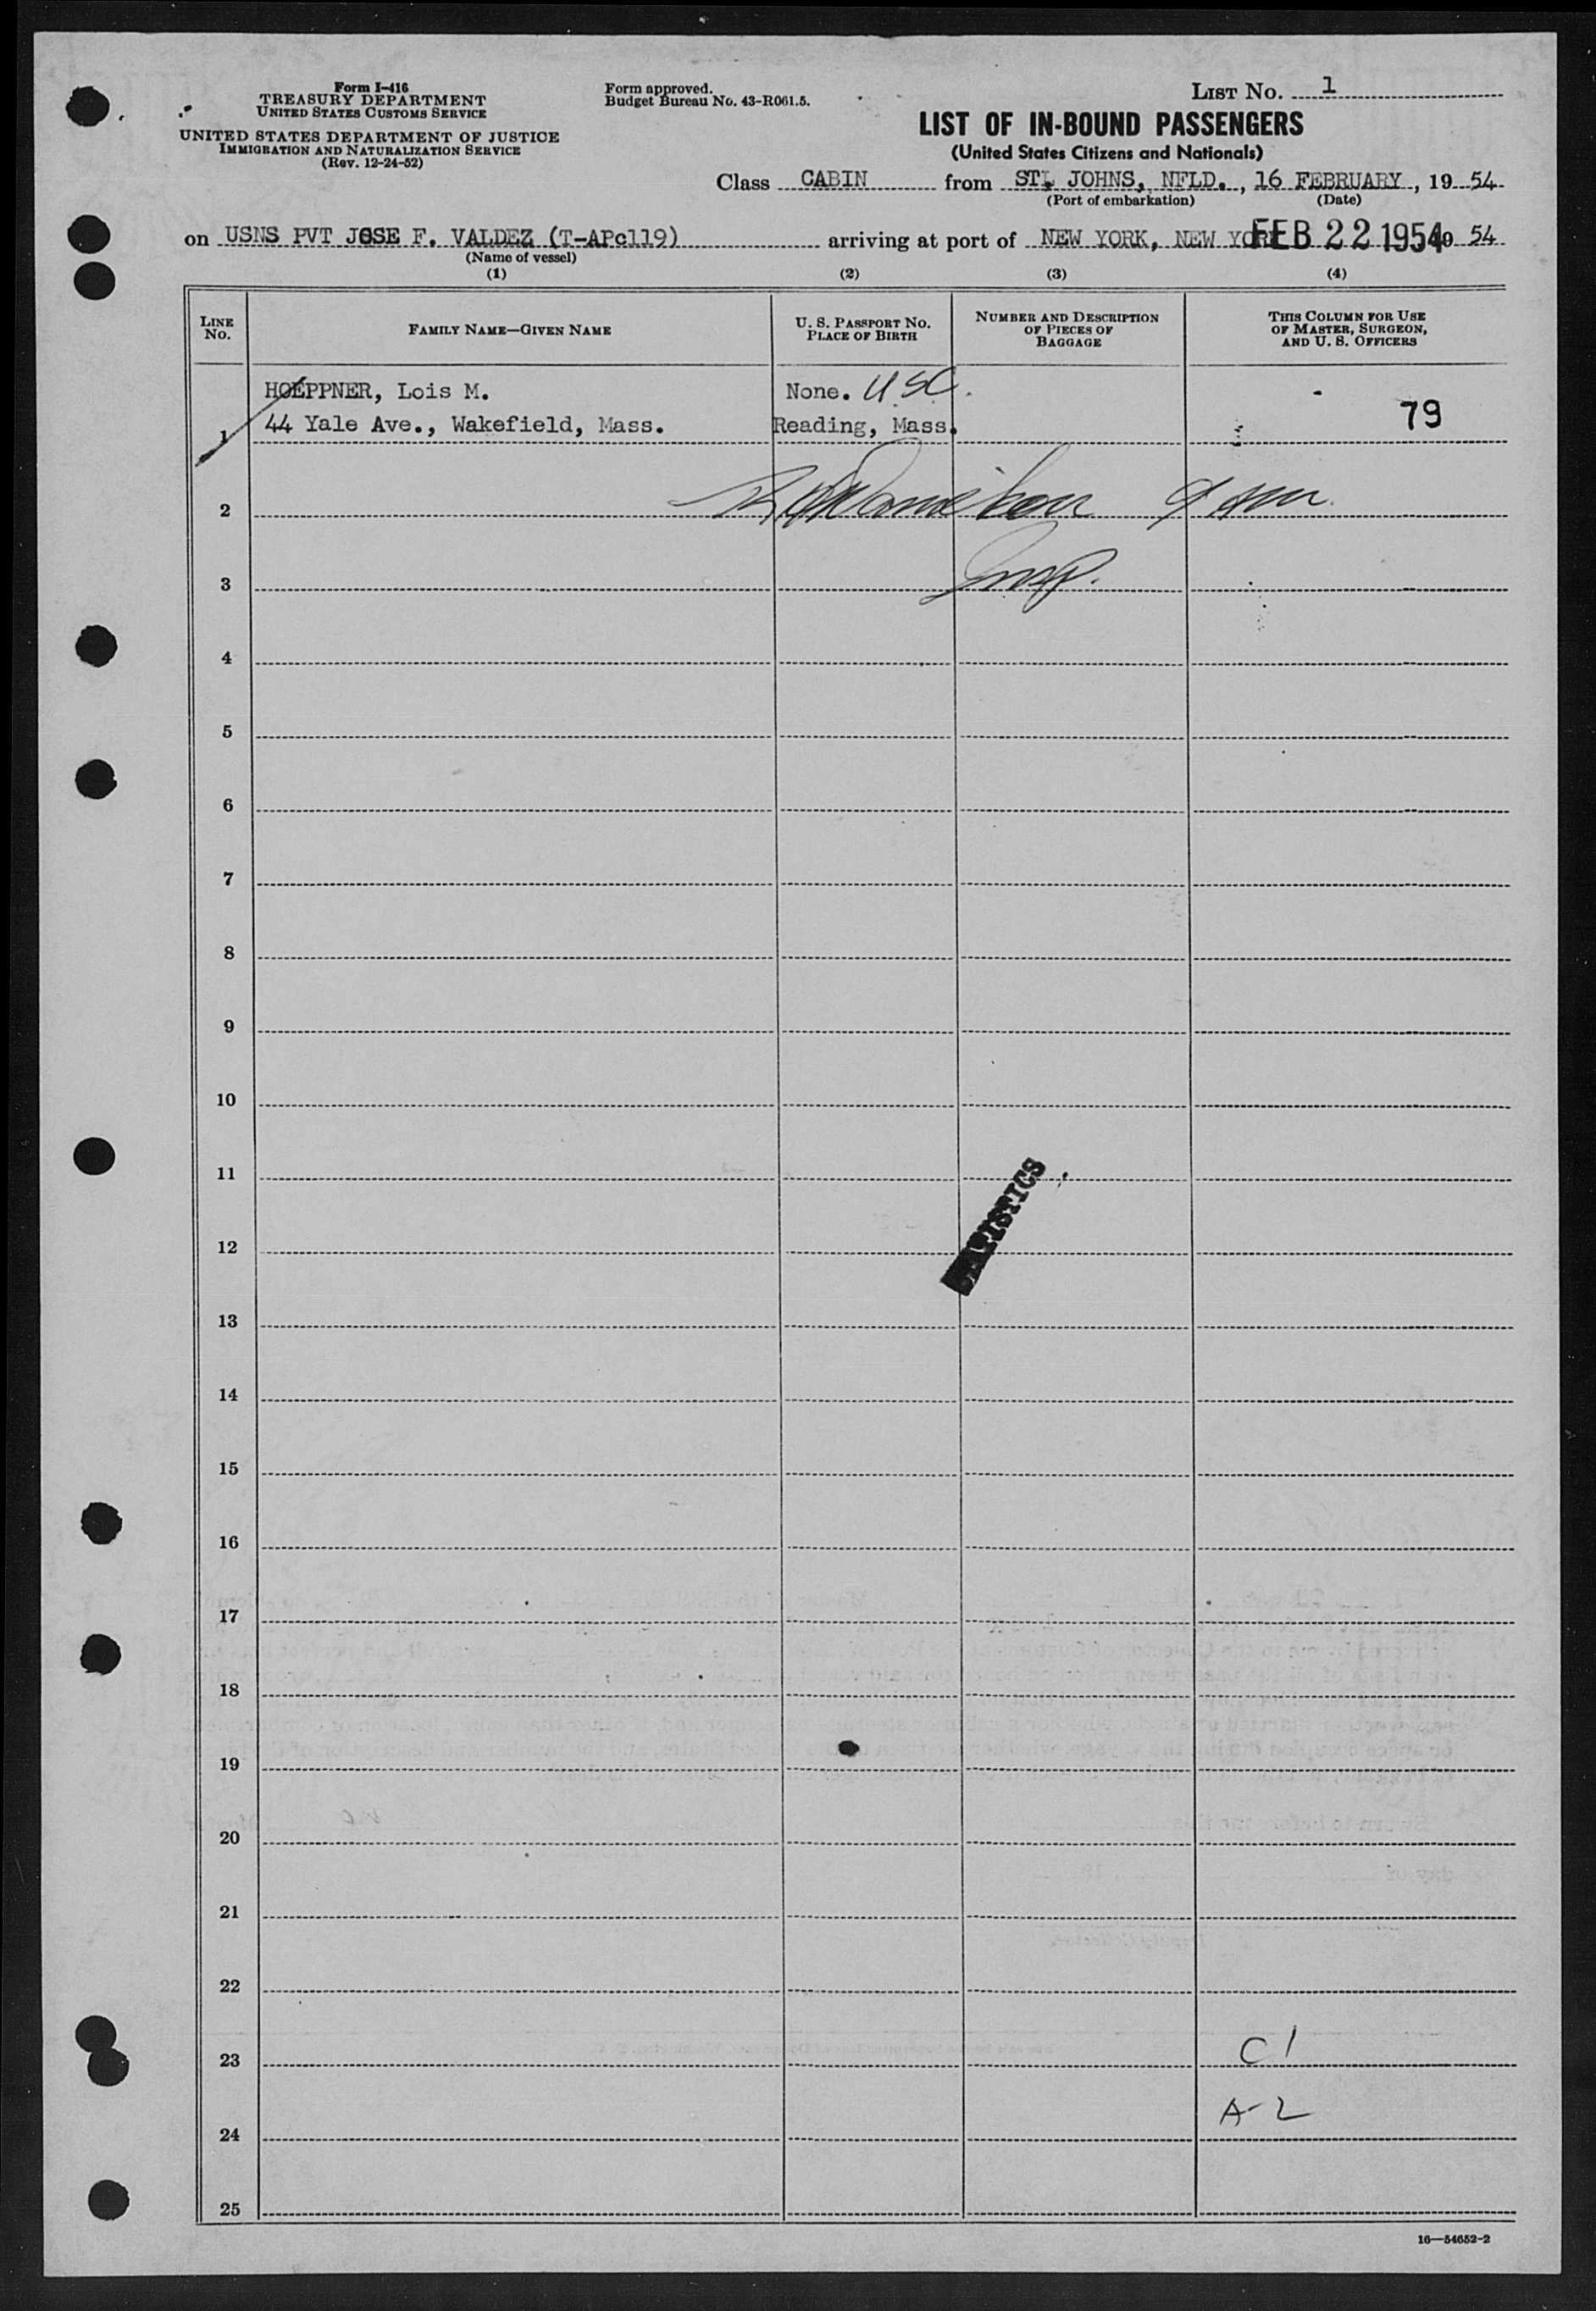 Form I-416
TREASURY DEPARTMENT
UNITED STATES CUSTOMS SERVICE
UNITED STATES DEPARTMENT OF JUSTICE
IMMIGRATION AND NATURALIZATION SERVICE
(Rev. 12-24-52)
Form approved.
Budget Bureau No. 43-R061.5.
LIST NO. 1
LIST OF IN-BOUND PASSENGERS
(United States Citizens and Nationals)
Class CABIN from ST. JOHNS, NFLD., 16 FEBRUARY, 19 54
(Port of embarkation) (Date)
on USNS PVT JOSE F. VALDEZ (T-APc119) arriving at port of NEW YORK, NEW YORK FEB 22 1954 19 54
(Name of vessel)
(1) (2) (3) (4)
LINE NO.
FAMILY NAME—GIVEN NAME
U. S. PASSPORT NO.
PLACE OF BIRTH
NUMBER AND DESCRIPTION
OF PIECES OF
BAGGAGE
THIS COLUMN FOR USE
OF MASTER, SURGEON,
AND U. S. OFFICERS
HOEPPNER, Lois M. None. USC.
1 44 Yale Ave., Wakefield, Mass. Reading, Mass. 79
2
3 Insp.
4
5
6
7
8
9
10
11
STATISTICS
12
13
14
15
16
17
18
19
20
21
22
23 C1
24 A-2
25
16—54652-2